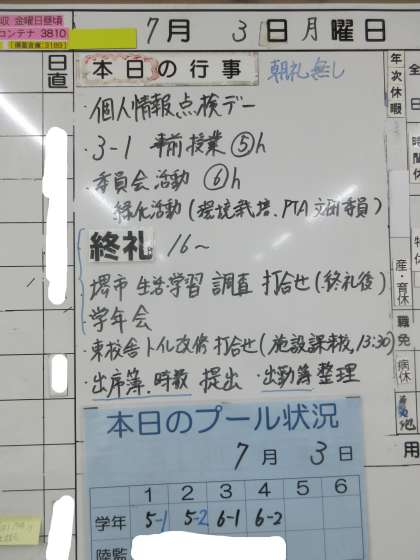 収 金曜日昼頃
コンテナ 3810
(備蓄倉庫:3193)
7月 3日 月曜日
日直
本日の行事 朝礼無し
・個人情報点検デー
・3-1 事前授業 ⑤h
・委員会活動 ⑥h
緑化活動(環境栽培、PTA文研委員)
終礼 16〜
・堺市 生活学習 調査 打合せ(終礼後)
・学年会
・東校舎トイレ改修 打合せ(施設課来校、13:30)
・出席簿、時数 提出 ・出勤簿整理
年次休暇
産・育休
職免
病休
用
本日のプール状況
7月 3日
1 2 3 4 5 6
学年 5-1 5-2 6-1 6-2
陸監